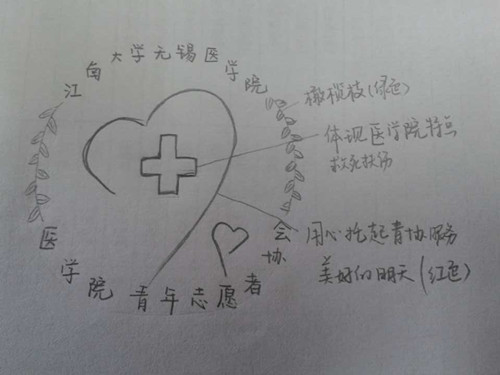 江南大学无锡医学院
医学院青年志愿者协会
橄榄枝(绿色)
体现医学院特点
救死扶伤
用心托起青协服务
美好的明天(红色)